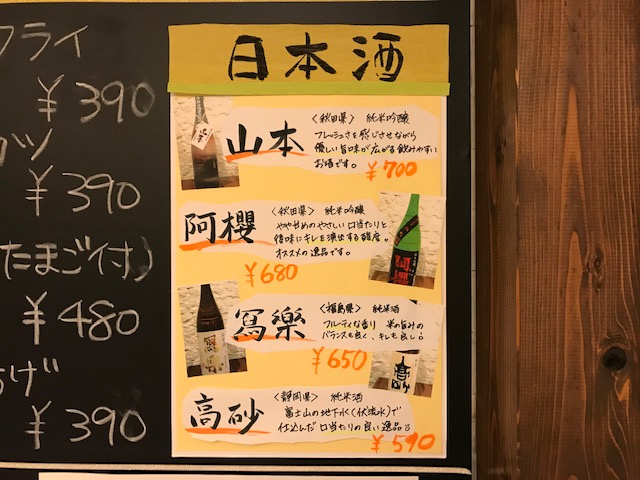 フライ
¥390
カツ
¥390
(たまご付)
¥480
あげ
¥390
日本酒
山本
〈秋田県〉 純米吟醸
フレッシュさを感じさせながら
優しい旨味が広がる飲みやすい
お酒です。
¥700
阿櫻
〈秋田県〉 純米吟醸
やや甘めのやさしい口当たりと
後味にキレを演出する酸度。
オススメの逸品です。
¥680
寫樂
〈福島県〉 純米酒
フルーティな香り 米の旨みの
バランスも良く、キレも良し。
¥650
高砂
〈静岡県〉 純米酒
富士山の地下水(伏流水)で
仕込んだ口当たりの良い逸品。
¥590